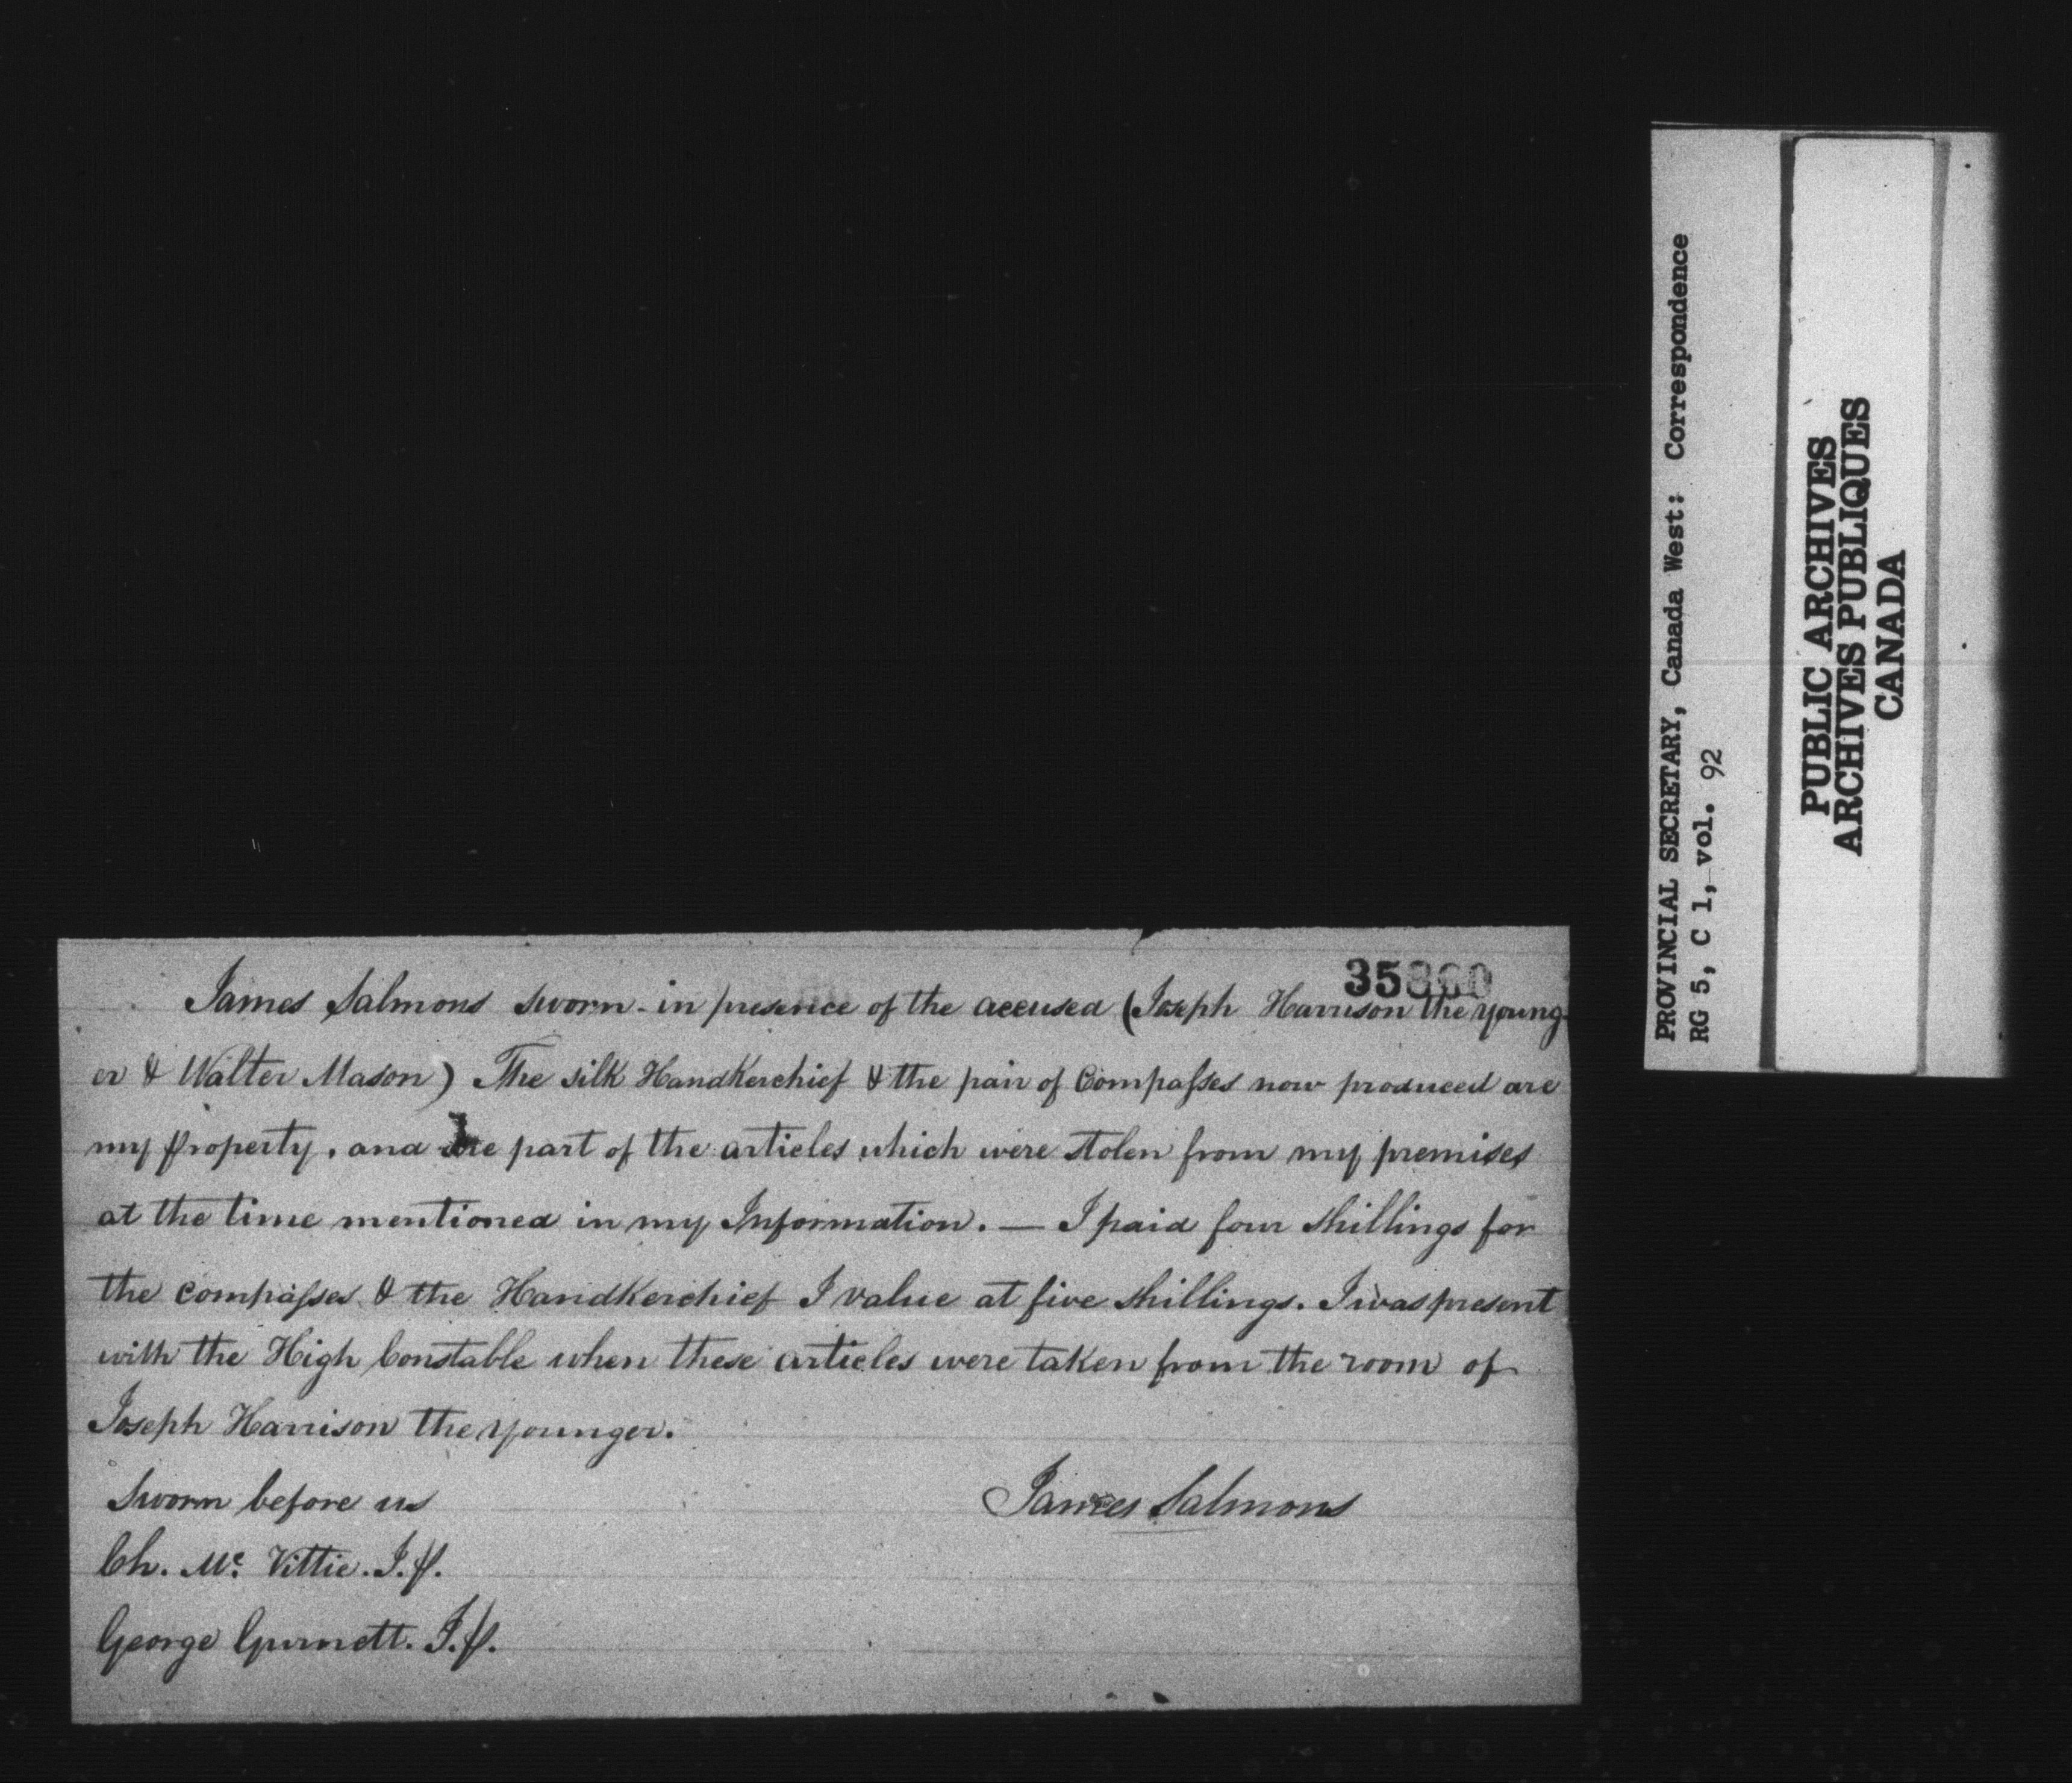 35860
James Salmons sworn in presence of the accused (Joseph Harrison the young-
er & Walter Mason) The silk Handkerchief & the pair of Compasses now produced are
my property, and are part of the articles which were stolen from my premises
at the time mentioned in my Information. — I paid four shillings for
the compasses & the Handkerchief I value at five shillings. I was present
with the High Constable when these articles were taken from the room of
Joseph Harrison the younger.
Sworn before us
James Salmons
Ch. Mc. Vittie. J.P.
George Gurnett. J.P.
PROVINCIAL SECRETARY, Canada West: Correspondence
RG 5, C 1, vol. 92
PUBLIC ARCHIVES
ARCHIVES PUBLIQUES
CANADA